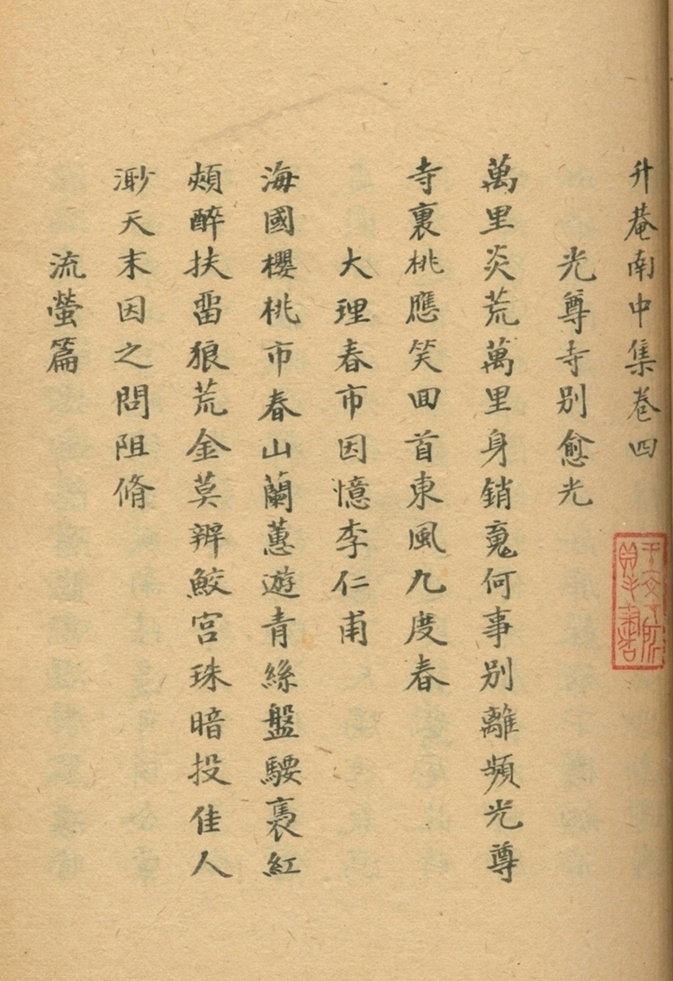 升菴南中集卷四
光尊寺別愈光
萬里炎荒萬里身銷䰟何事別離頻光尊
寺裏桃應笑回首東風九度春
大理春市因憶李仁甫
海國櫻桃市春山蘭蕙遊青絲盤騕褭紅
頰醉扶畱狼荒金莫辨鮫宮珠暗投佳人
渺天末因之問阻脩
流螢篇